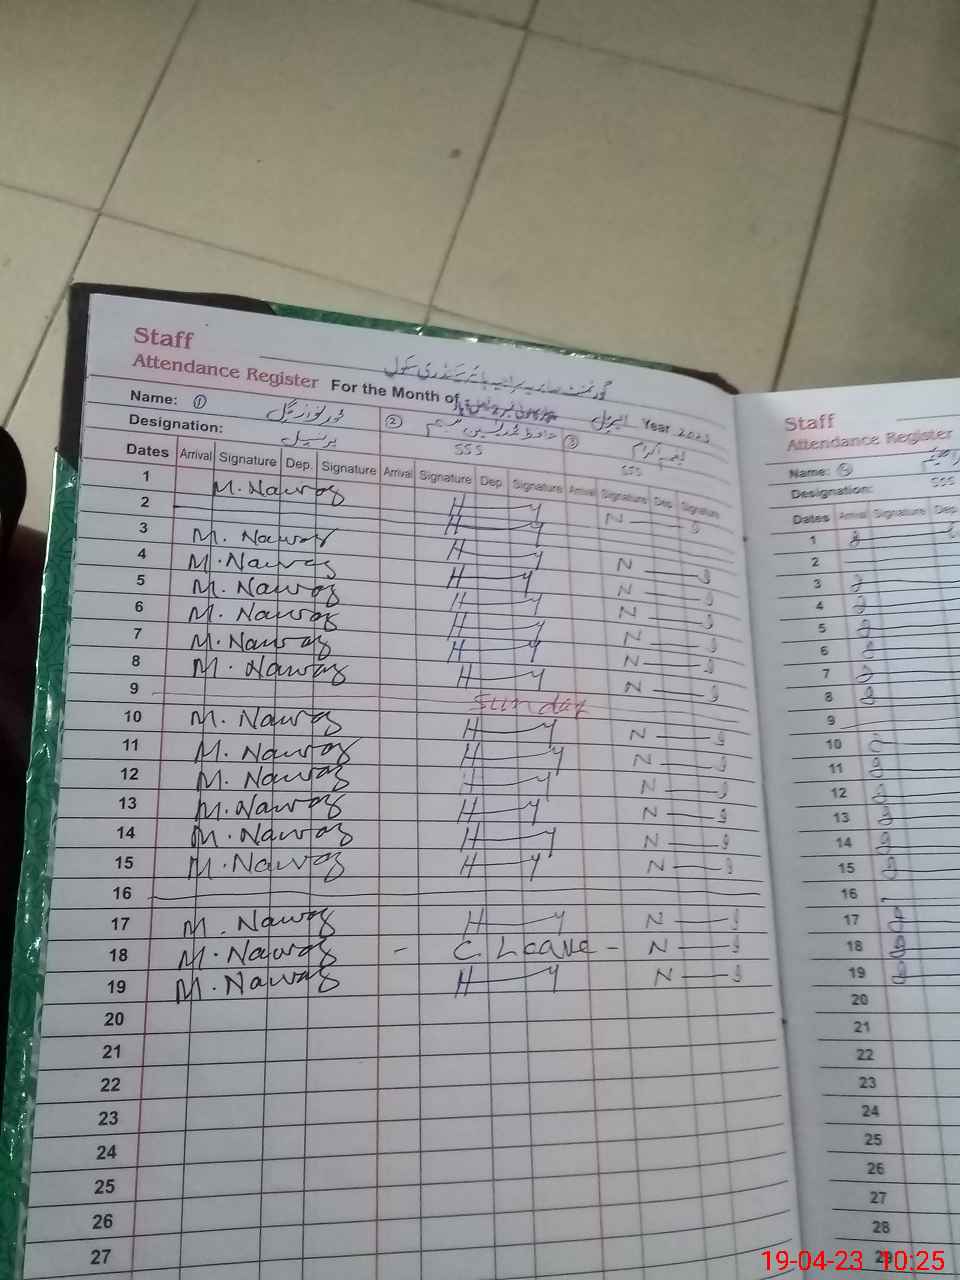 Staff
Attendance Register For the Month of اپریل Year 2023
Name: ① محمد نواز ② حافظ ③
Designation: پرنسپل SSS SSS
Dates Arrival Signature Dep. Signature Arrival Signature Dep. Signature Arrival Signature Dep. Signature
1 M. Nawaz H — y N — g
2
3 M. Nawaz H — y N — g
4 M. Nawaz H — y N — g
5 M. Nawaz H — y N — g
6 M. Nawaz H — y N — g
7 M. Nawaz H — y N — g
8 M. Nawaz H — y N — g
9 Sunday
10 M. Nawaz H — y N — g
11 M. Nawaz H — y N — g
12 M. Nawaz H — y N — g
13 M. Nawaz H — y N — g
14 M. Nawaz H — y N — g
15 M. Nawaz H — y N — g
16
17 M. Nawaz H — y N — g
18 M. Nawaz - C Leave - N — g
19 M. Nawaz H — y N — g
20
21
22
23
24
25
26
27
Staff
Attendance Register
Name:
Designation: SSS
Dates Arrival Signature Dep
1
2
3
4
5
6
7
8
9
10
11
12
13
14
15
16
17
18
19
20
21
22
23
24
25
26
27
28
29
19-04-23 10:25